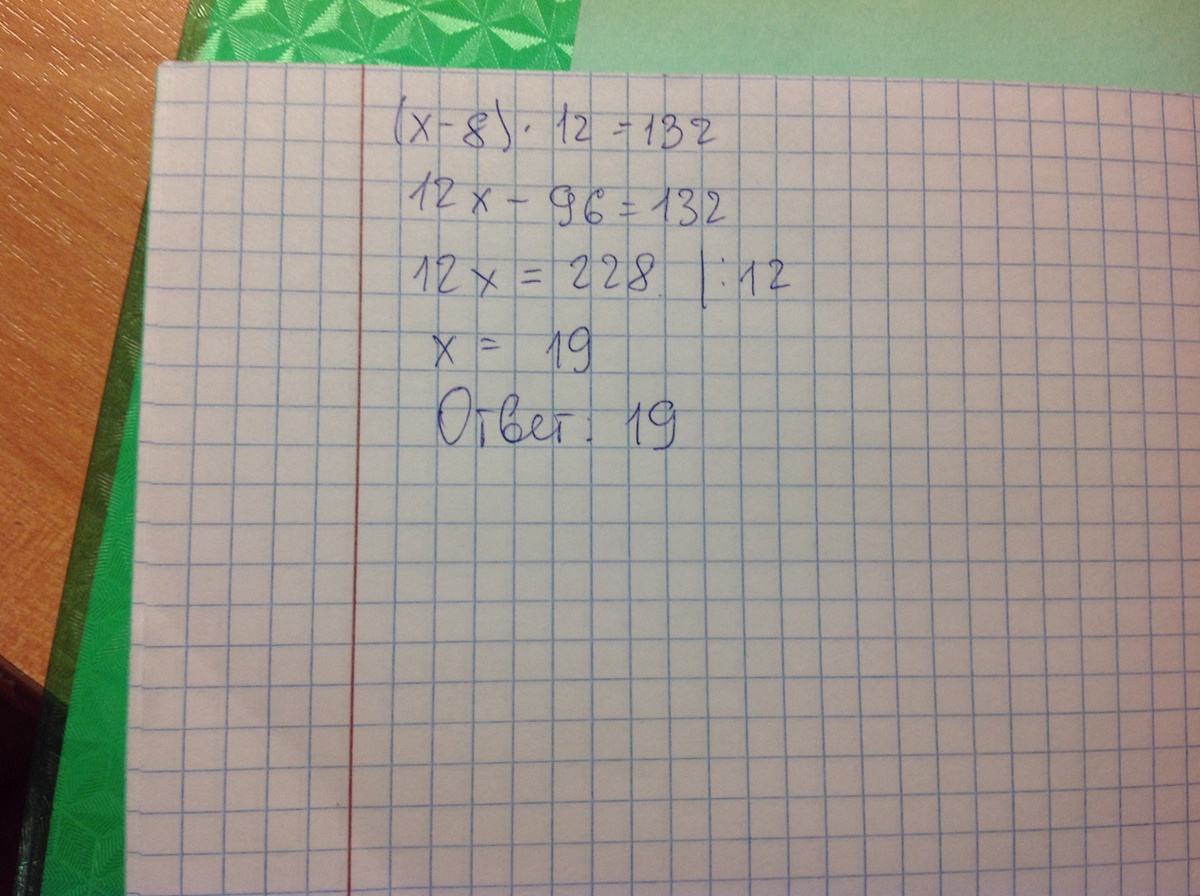 (x-8)· 12 =132
12x - 96=132
12x = 228 |:12
x = 19
Ответ: 19